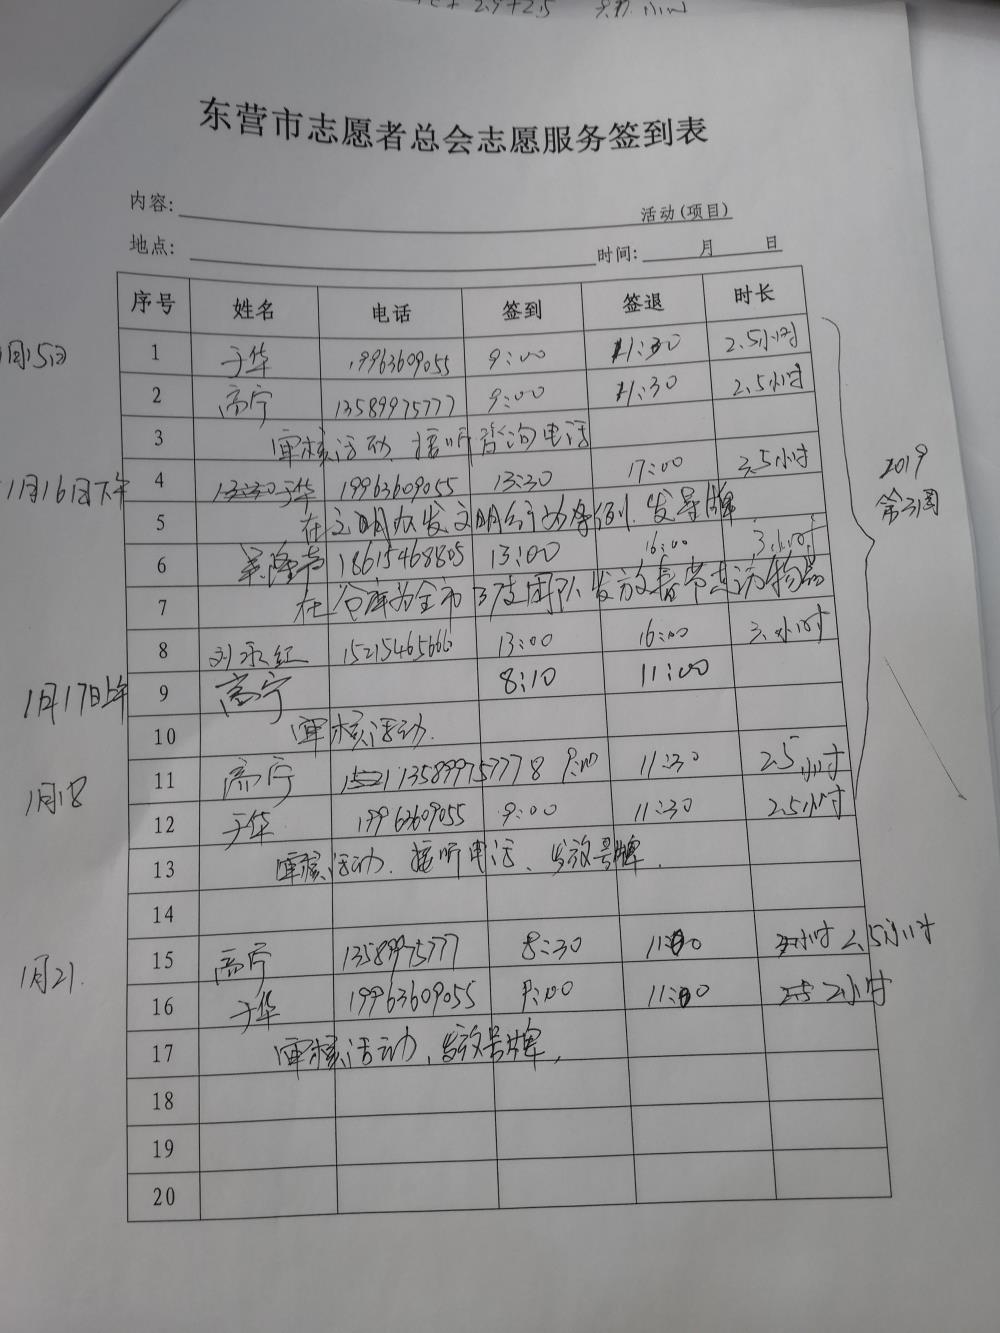 东营市志愿者总会志愿服务签到表
内容: 活动(项目)
地点: 时间: 月 日
序号 姓名 电话 签到 签退 时长
月15日 1 于华 19963609055 9:00 11:30 2.5小时
2 高宁 13589975777 9:00 11:30 2.5小时
3 审核活动、接听咨询电话
1月16日下午 4 于华 19963609055 13:30 17:00 3.5小时
5 在文明办发文明 条例、发号牌
6 18615468805 13:00 16:00 3小时
7 在仓库为全市 支团队发放春节走访物品
8 刘永红 15215465666 13:00 16:00 3小时
1月17日上午 9 高宁 8:10 11:00
10 审核活动.
1月18 11 高宁 13589975777 9:00 11:30 2.5小时
12 于华 19963609055 9:00 11:30 2.5小时
13 审核活动、接听电话、发放号牌.
14
1月21. 15 高宁 13589975777 8:30 11:00 2.5小时
16 于华 19963609055 9:00 11:00 2小时
17 审核活动、发放号牌,
18
19
20
2019
第三周